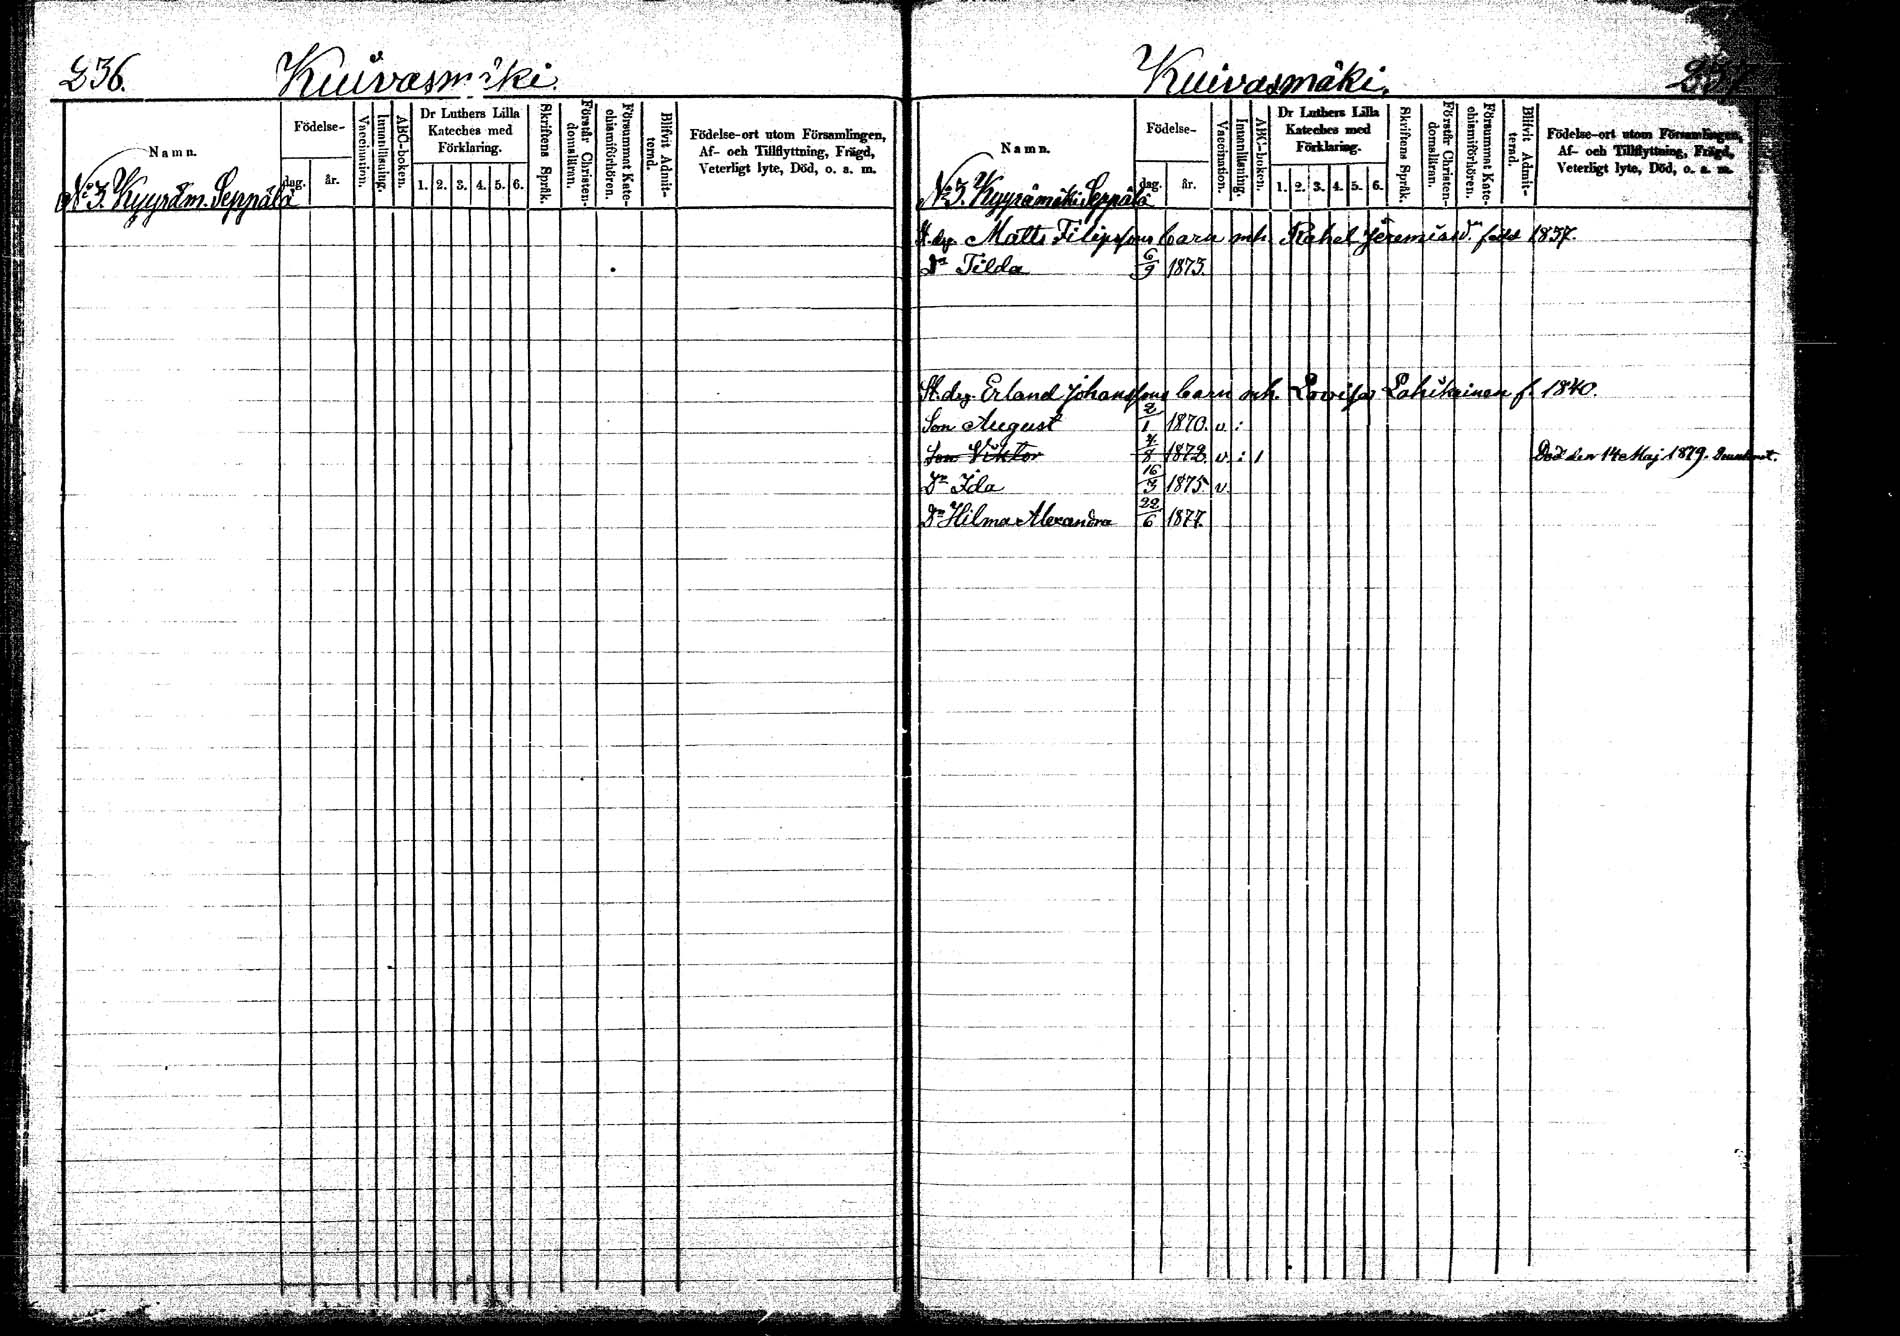 236.
Kuivasmäki.
Namn.
Födelse-
dag.
år.
Vaccination.
Innanläsning.
ABC-boken.
Dr Luthers Lilla
Kateches med
Förklaring.
1. 2. 3. 4. 5. 6.
Skriftens Språk.
Förstår Christen-
domsläran.
Försummat Kate-
chismiförhören.
Blifvit Admit-
terad.
Födelse-ort utom Församlingen,
Af- och Tillflyttning, Frägd,
Veterligt lyte, Död, o. s. m.
No 3. Kyyräm. Seppälä
Kuivasmäki.
Namn.
Födelse-
dag.
år.
Vaccination.
Innanläsning.
ABC-boken.
Dr Luthers Lilla
Kateches med
Förklaring.
1. 2. 3. 4. 5. 6.
Skriftens Språk.
Förstår Christen-
domsläran.
Försummat Kate-
chismiförhören.
Blifvit Admit-
terad.
Födelse-ort utom Församlingen,
Af- och Tillflyttning, Frägd,
Veterligt lyte, Död, o. s. m.
No 3. Kyyrämäki Seppälä
Matts Filipssons barn mh. Rahel Jeremiasd. född 1837.
Dr Tilda 6/9 1873.
St. drg. Erland Johanssons barn mh. Lovisa Lahikainen f. 1840.
Son August 2/1 1870. v :
Son Viktor 4/8 1872. v : 1 Död den 14 Maj 1879.
Dr Ida 16/3 1875 v.
Dr Hilma Alexandra 22/6 1877.